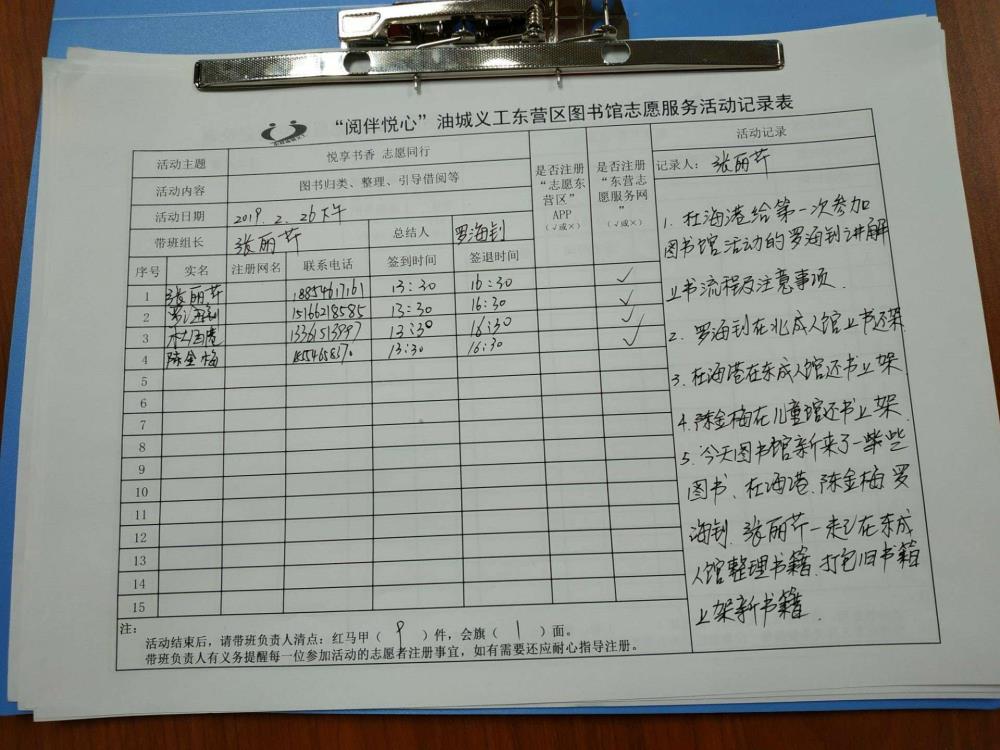 “阅伴悦心”油城义工东营区图书馆志愿服务活动记录表
活动主题 悦享书香 志愿同行
活动内容 图书归类、整理、引导借阅等
活动日期 2019.2.26下午
带班组长 张丽芹 总结人 罗海钊
是否注册“志愿东营区”APP（√或×）
是否注册“东营志愿服务网”（√或×）
序号 实名 注册网名 联系电话 签到时间 签退时间
1 张丽芹 18854617161 13:30 16:30 √
2 罗海钊 15166218585 13:30 16:30 √
3 杜海港 13361513997 13:30 16:30 √
4 陈金梅 13:30 16:30 √
5
6
7
8
9
10
11
12
13
14
15
注：
活动结束后，请带班负责人清点：红马甲（ 9 ）件，会旗（ 1 ）面。
带班负责人有义务提醒每一位参加活动的志愿者注册事宜，如有需要还应耐心指导注册。
活动记录
记录人：张丽芹
1. 杜海港给第一次参加
图书馆活动的罗海钊讲解
上书流程及注意事项.
2. 罗海钊在北成人馆上书还架
3. 杜海港在东成人馆还书上架
4. 陈金梅在儿童馆还书上架.
5. 今天图书馆新来了一些些
图书、杜海港、陈金梅 罗
海钊、张丽芹一起在东成
人馆整理书籍、打包旧书籍
上架新书籍.